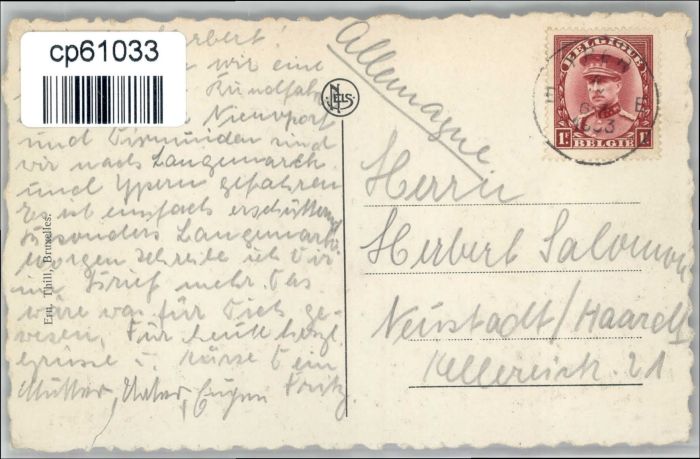 cp61033
Herbert!
wir eine
Rundfahrt
Nieuport
und Dixmuiden sind
wir nach Langemarck
und Ypern gefahren
Es ist einfach erschütternd
besonders Langemark
Morgen schreibe ich Dir
im Brief mehr. Das
wäre was für Dich ge-
wesen. Für heute herzl
Grüsse u. Küsse Dein
Mutter, Vater, Eugen Fritz
Ern. Thill, Bruxelles.
NELS
Allemagne
BELGIQUE
1F 1F
BELGIE
Herrn
Herbert Salomon
Neustadt/Haardt
Kellereistr. 21